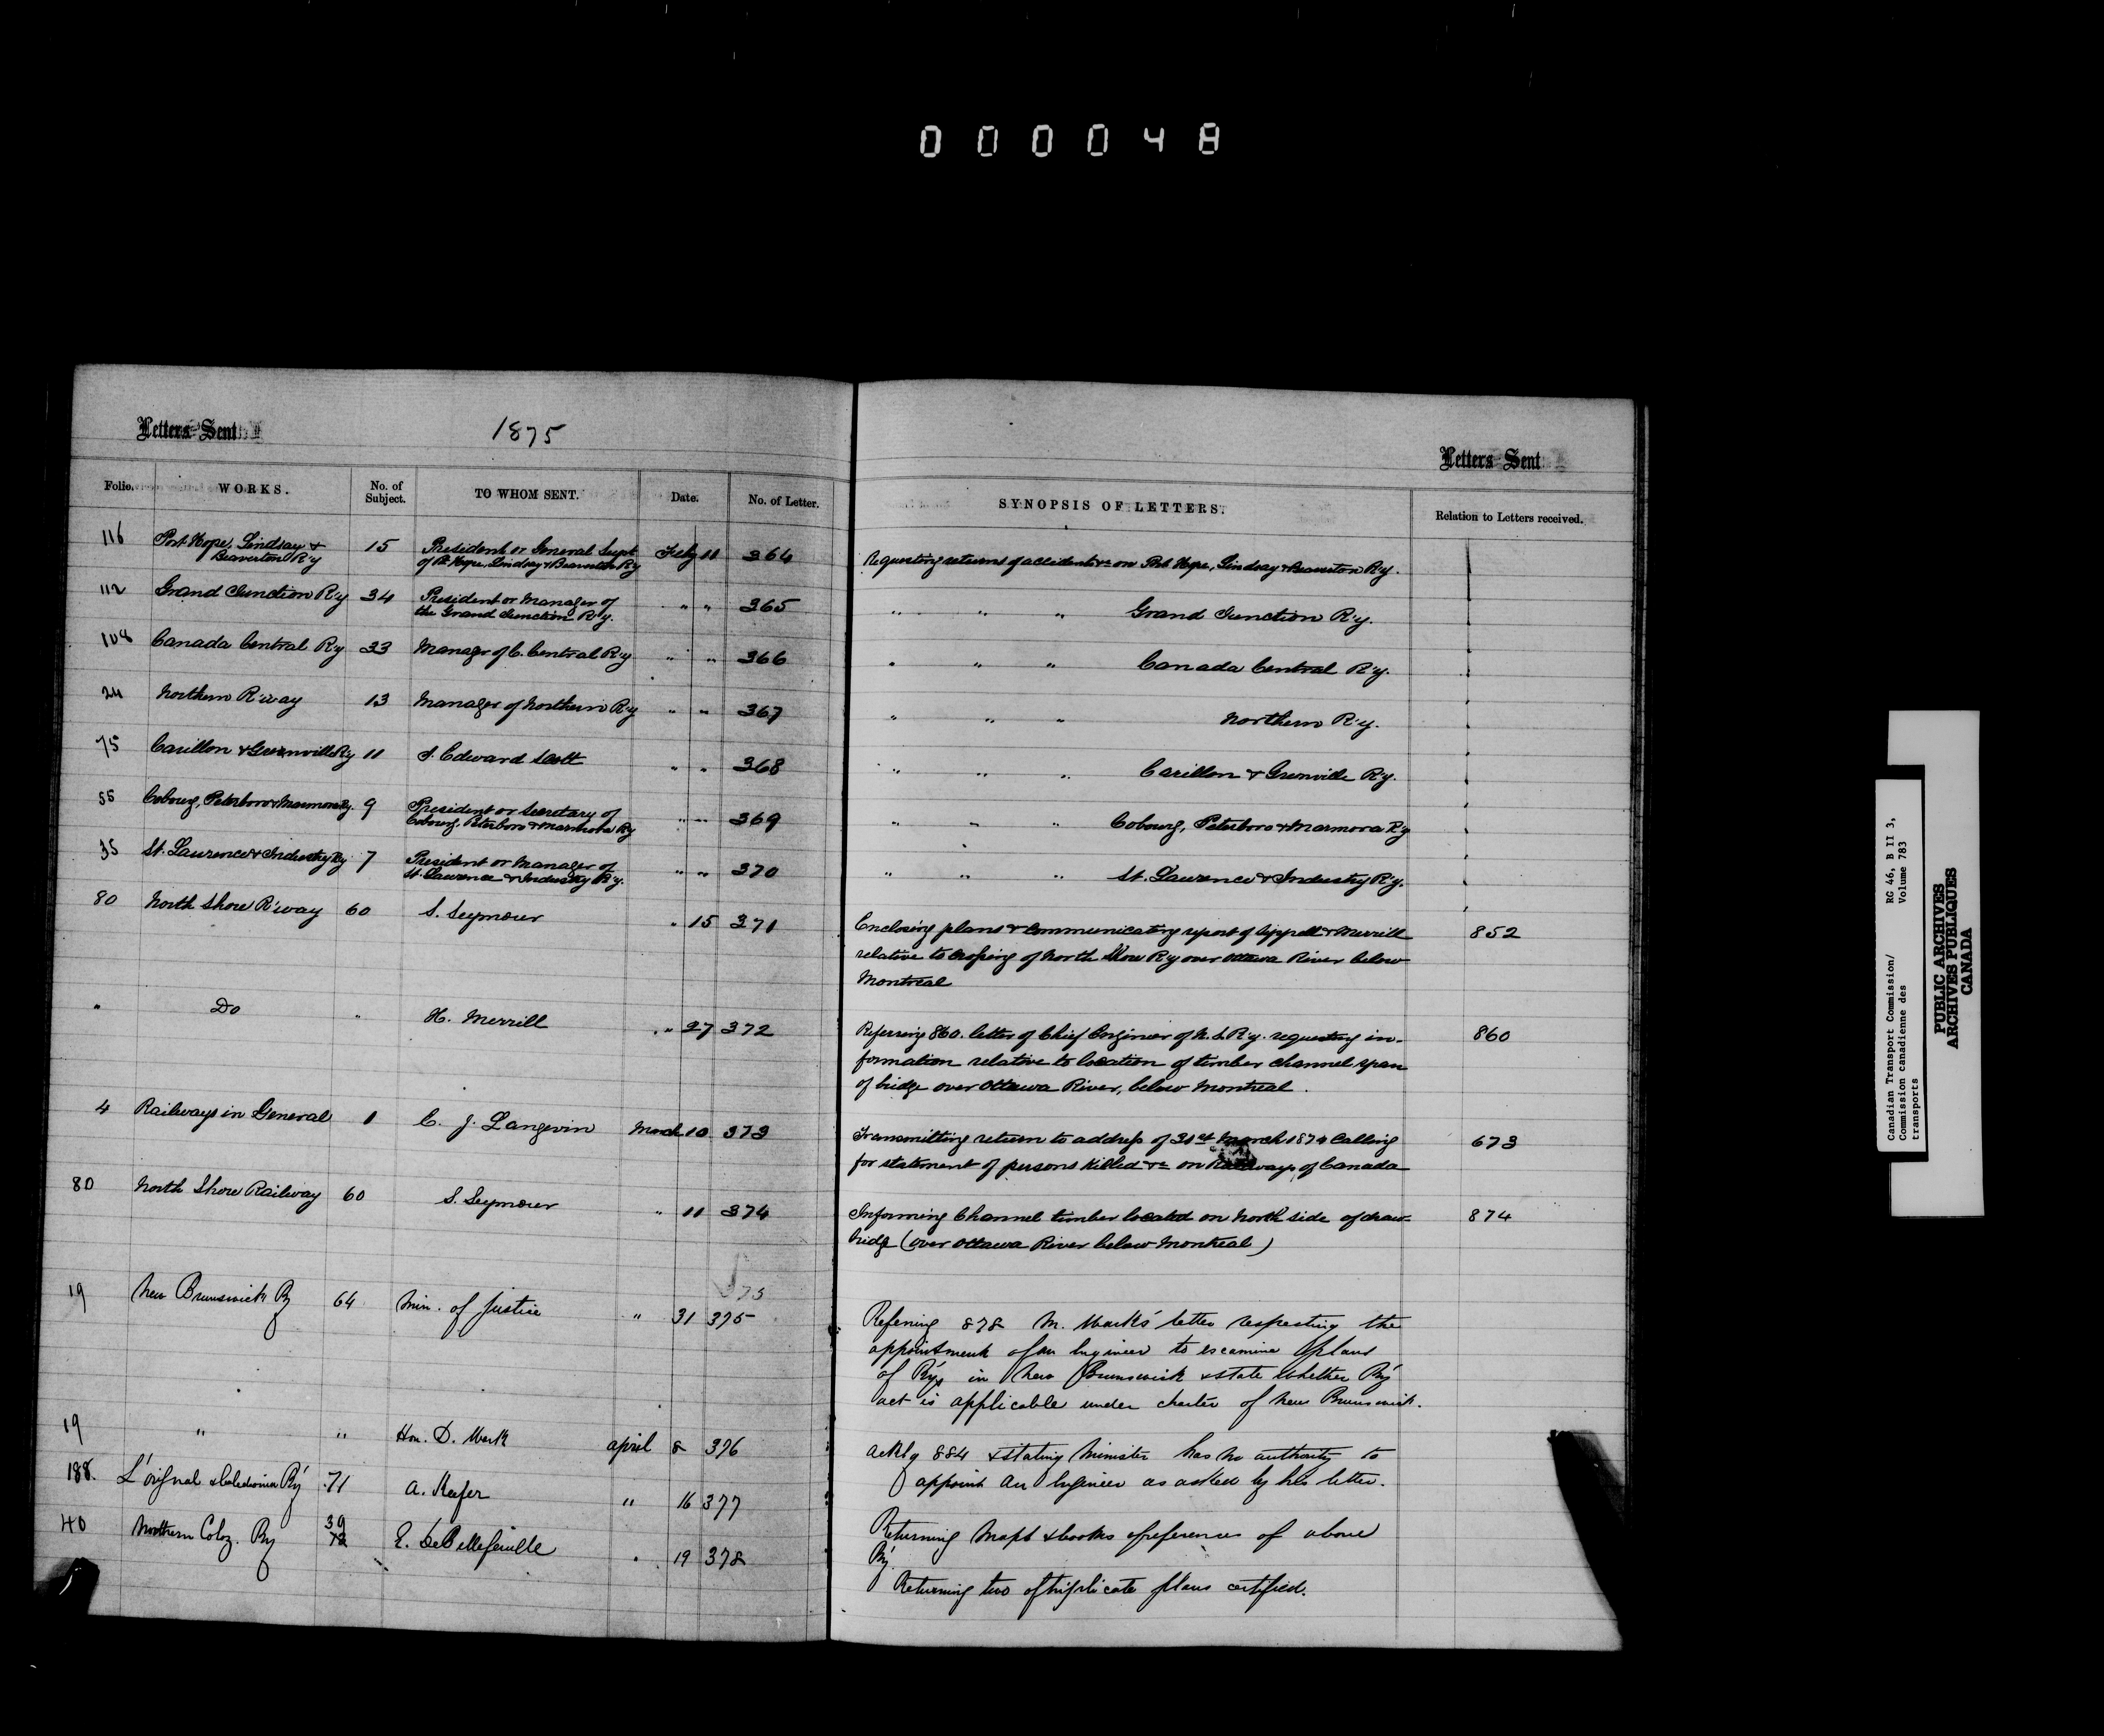 000048
Letters Sent
1875
Folio. WORKS. No. of Subject. TO WHOM SENT. Date. No. of Letter.
116 Port Hope, Lindsay & Beaverton R'y 15 President or General Supt of Pt. Hope, Lindsay & Beaverton Ry Feby 11 364
112 Grand Junction R'y 34 President or Manager of the Grand Junction R'y. " " 365
108 Canada Central R'y 33 Manager of C. Central R'y " " 366
24 Northern R'way 13 Manager of Northern R'y " " 367
75 Carillon & Grenville Ry 11 J. Edward Scott " " 368
55 Cobourg, Peterboro & Marmora Ry. 9 President or Secretary of Cobourg, Peterboro & Marmora Ry " " 369
35 St. Lawrence & Industry Ry 7 President or Manager of St. Lawrence & Industry R'y. " " 370
80 North Shore R'way 60 S. Seymour " 15 371
" Do " H. Merrill " 27 372
4 Railways in General 1 C. J. Langevin March 10 373
80 North Shore Railway 60 S. Seymour " 11 374
375
19 New Brunswick Ry 64 Min. of Justice " 31 375
19 " " Hon. D. Wark April 8 376
188. L'orignal & Caledonia R'y 71 A. Keefer " 16 377
40 Northern Coloz. Ry 39 72 E. DeBellefeuille " 19 378
Letters Sent
SYNOPSIS OF LETTERS. Relation to Letters received.
Requesting returns of accidents &c on Port Hope, Lindsay & Beaverton R'y.
" " " Grand Junction R'y.
" " " Canada Central R'y.
" " " Northern R'y.
" " " Carillon & Grenville R'y.
" " " Cobourg, Peterboro & Marmora Ry
" " " St. Lawrence & Industry R'y.
Enclosing plans & communicating report of Sippell & Merrill 852
relative to crossing of North Shore R'y over Ottawa River below
Montreal
Referring 860. letter of Chief Engineer of N. S. R'y. requesting in- 860
formation relative to location of timber channel span
of bridge over Ottawa River, below Montreal.
Transmitting return to address of 31st March 1874 Calling 673
for statement of persons killed &c on Railways of Canada
Informing Channel timber located on North side of draw- 874
bridge (over Ottawa River below Montreal)
Referring 878 M. Wark's letter respecting the
appointment of an Engineer to examine plans
of R'ys in New Brunswick & state whether R'y
act is applicable under charter of New Brunswick.
Ackl'g 884 & stating Minister has no authority to
appoint an Engineer as asked by his letter.
Returning Maps & books of references of above
R'y.
Returning two of triplicate plans certified.
Canadian Transport Commission/
Commission canadienne des
transports
RG 46, B II 3,
Volume 783
PUBLIC ARCHIVES
ARCHIVES PUBLIQUES
CANADA